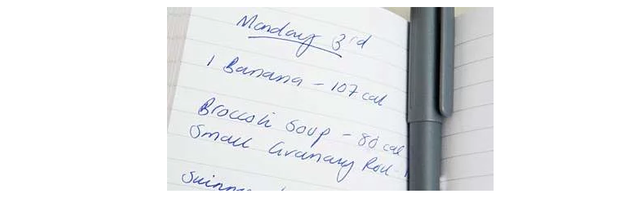 Monday 3rd
1 Banana - 107 cal
Broccoli Soup - 80 cal
Small Granary Roll - 1